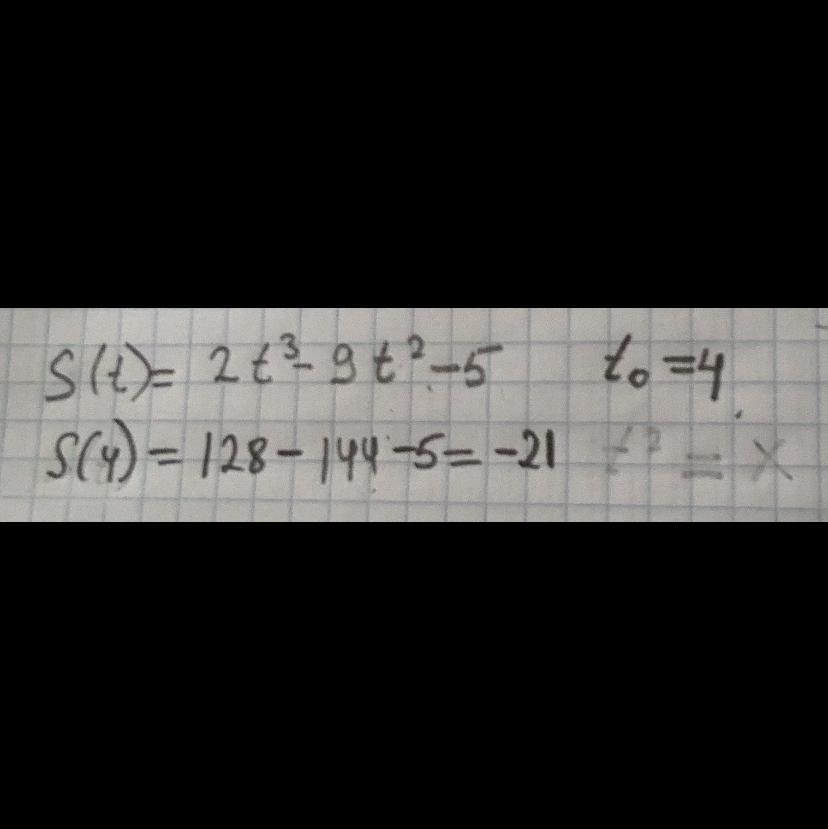 S(t)= 2t³-9t²-5 t₀=4
S(4)=128-144-5=-21 t² = x